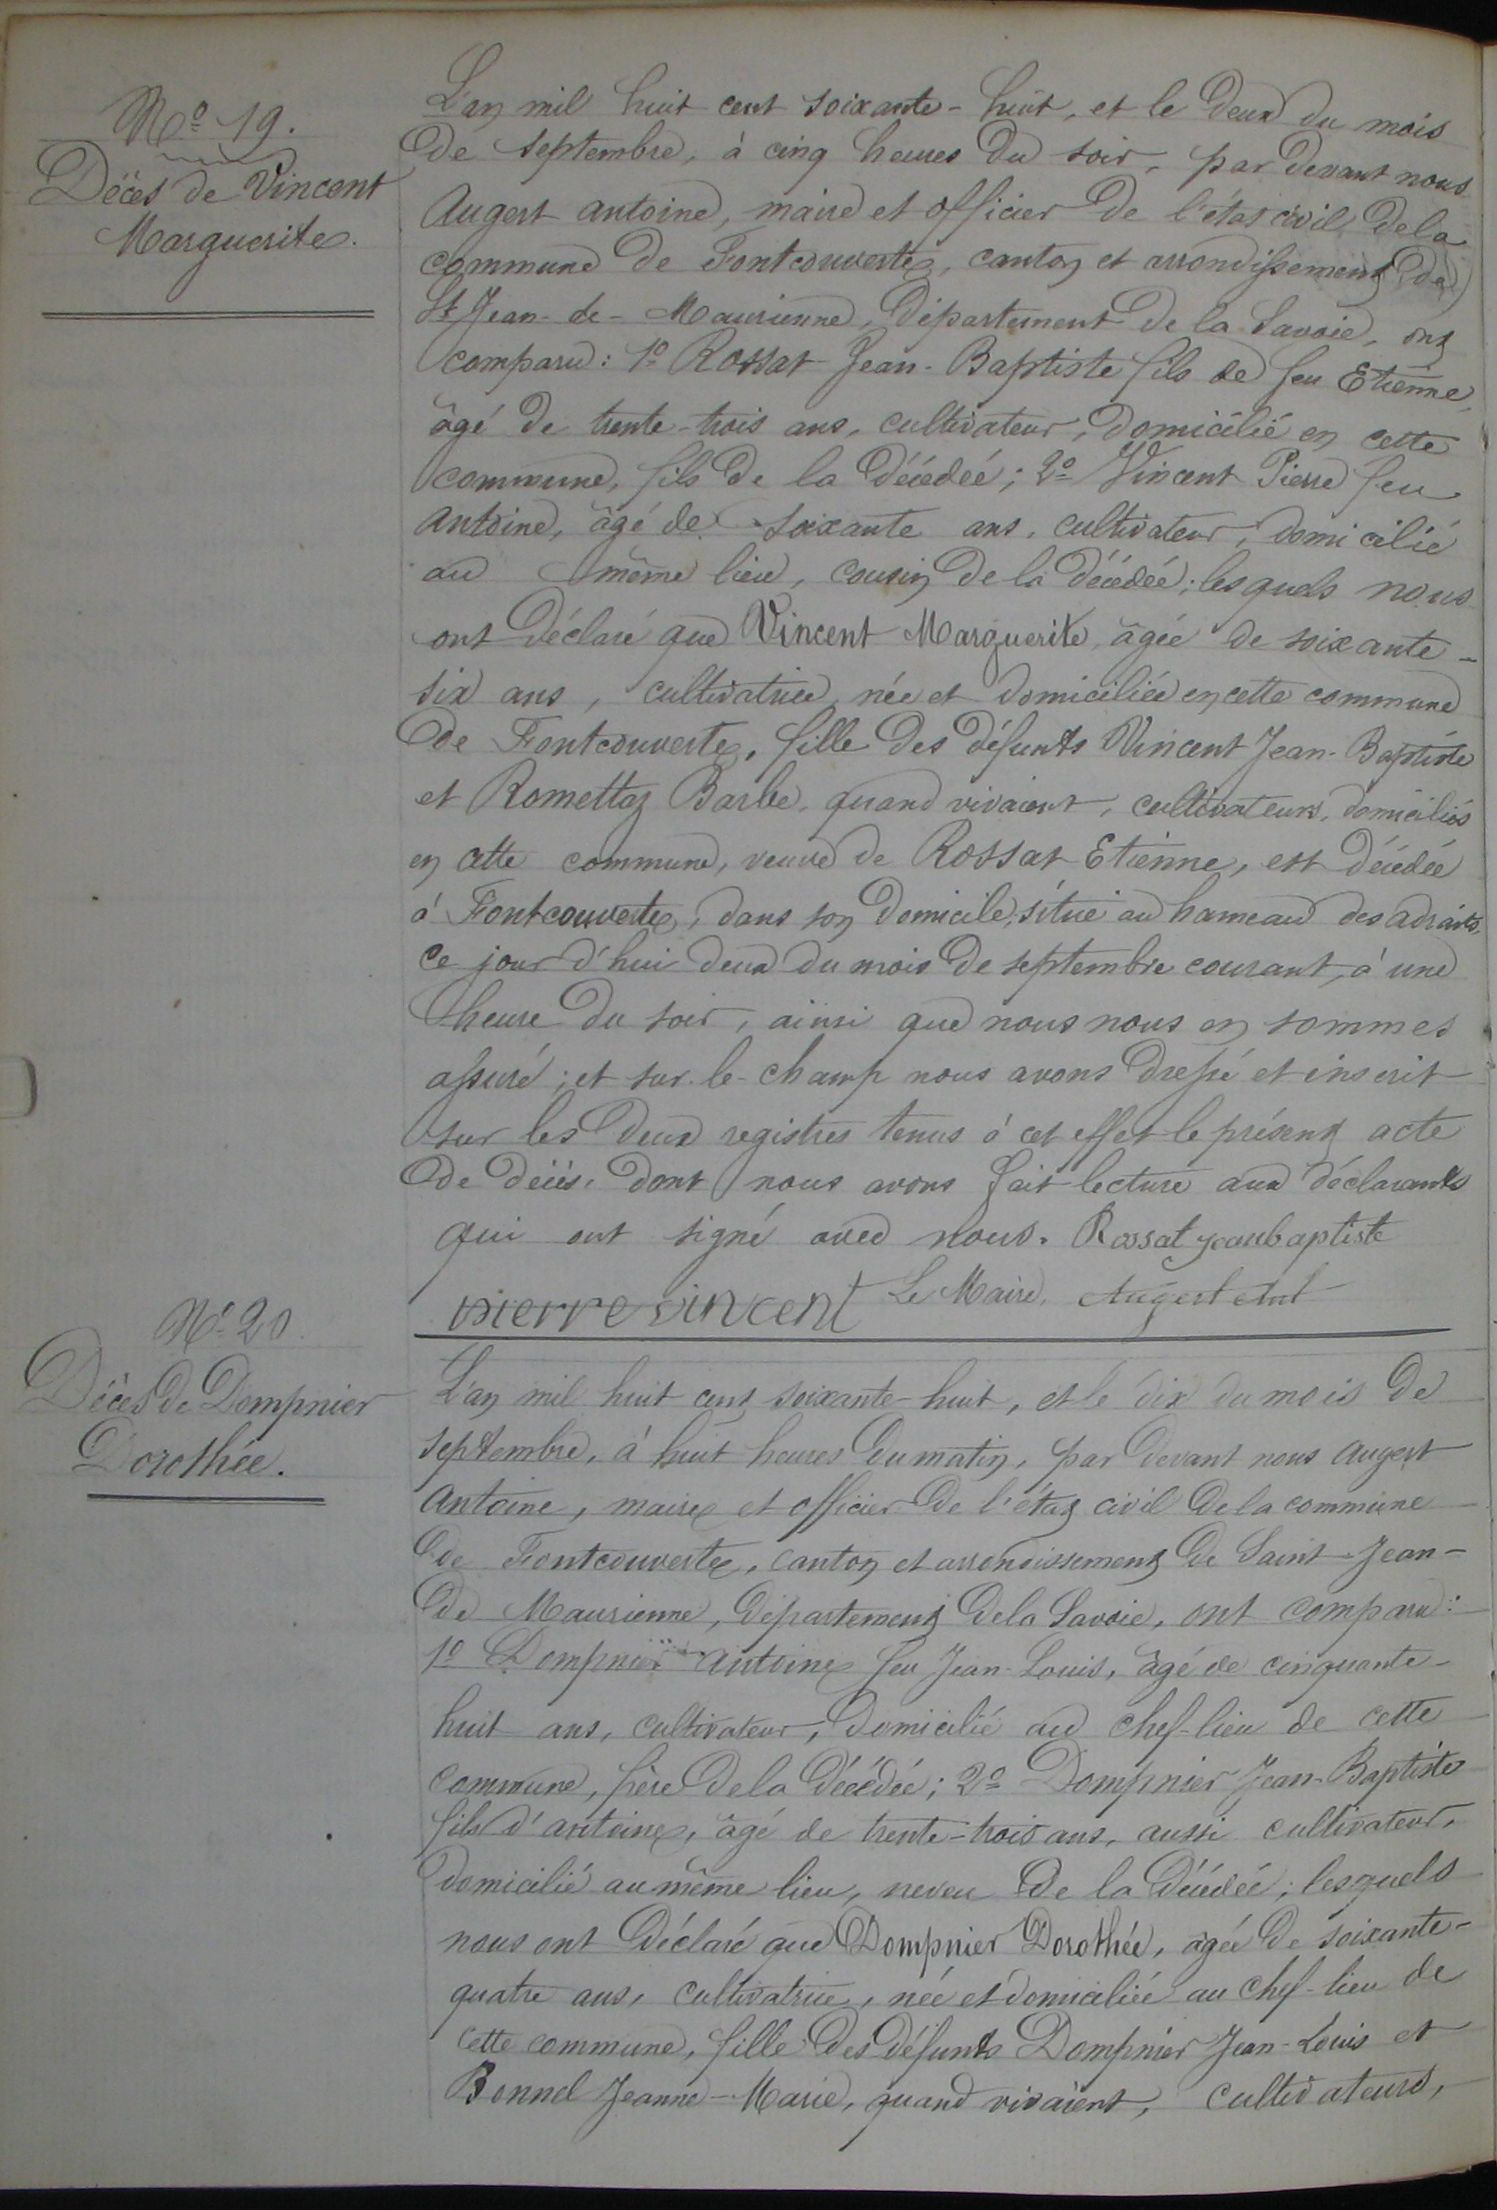 Nº 19.
Décès de Vincent
Marguerite.
L'an mil huit cent soixante-huit, et le deux du mois
de septembre, à cinq heures du soir, par devant nous
Augert antoine, maire et officier de l'état civil de la
commune de Fontcouverte, canton et arrondissement de
St Jean-de-Maurienne, département de la Savoie, ont
comparu: 1º Rossat Jean-Baptiste fils de feu Etienne,
âgé de trente-trois ans, cultivateur, domicilié en cette
commune, fils de la décédée; 2º Vincent Pierre feu
antoine, âgé de soixante ans, cultivateur, domicilié
au même lieu, cousin de la décédée; lesquels nous
ont déclaré que Vincent Marguerite, âgée de soixante-
six ans, cultivatrice, née et domiciliée en cette commune
de Fontcouverte, fille des défunts Vincent Jean-Baptiste
et Romettaz Barbe, quand vivaient, cultivateurs, domiciliés
en cette commune, veuve de Rossat Etienne, est décédée
à Fontcouverte, dans son domicile, situé au hameau des adraits,
ce jour d'hui deux du mois de septembre courant, à une
heure du soir, ainsi que nous nous en sommes
assuré; et sur-le-champ nous avons dressé et inscrit
sur les deux registres tenus à cet effet le présent acte
de décès, dont nous avons fait lecture aux déclarants
qui ont signé avec nous. Rossat jeanbaptiste
pierre vincent Le Maire, Augert Ant
Nº 20.
Décès de Dompnier
Dorothée.
L'an mil huit cent soixante-huit, et le dix du mois de
septembre, à huit heures du matin, par devant nous Augert
antoine, maire et officier de l'état civil de la commune
de Fontcouverte, canton et arrondissement de Saint-Jean-
de Maurienne, département de la Savoie, ont comparu:
1º Dompnier antoine feu Jean-Louis, âgé de cinquante-
huit ans, cultivateur, domicilié au chef-lieu de cette
commune, frère de la décédée; 2º Dompnier Jean-Baptiste
fils d'antoine, âgé de trente-trois ans, aussi cultivateur,
domicilié au même lieu, neveu de la décédée; lesquels
nous ont déclaré que Dompnier Dorothée, âgée de soixante-
quatre ans, cultivatrice, née et domiciliée au chef-lieu de
cette commune, fille des défunts Dompnier Jean-Louis et
Bonnel Jeanne-Marie, quand vivaient, cultivateurs,